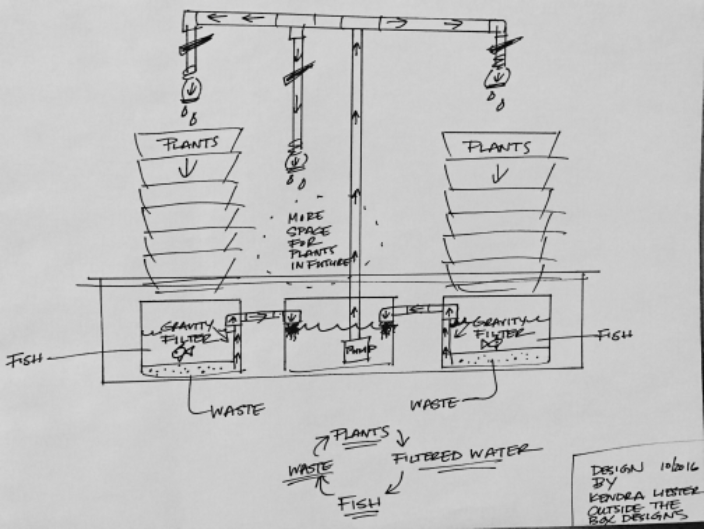 PLANTS
PLANTS
MORE
SPACE
FOR
PLANTS
IN FUTURE
GRAVITY
FILTER
FISH
PUMP
GRAVITY
FILTER
FISH
WASTE
WASTE
PLANTS
FILTERED WATER
WASTE
FISH
DESIGN 10/2016
BY
KENDRA
OUTSIDE THE
BOX DESIGNS